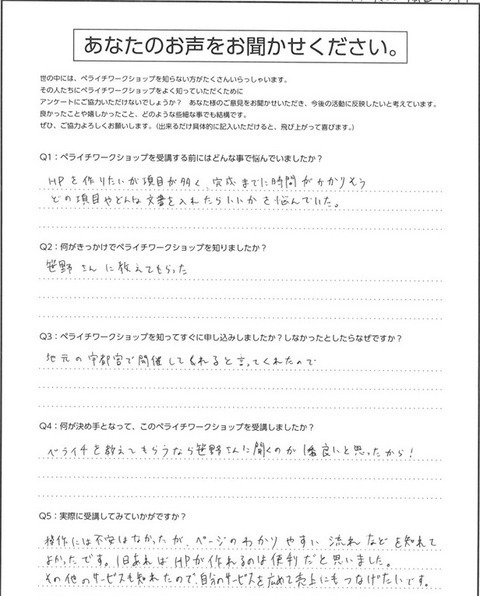 あなたのお声をお聞かせください。
世の中には、ペライチワークショップを知らない方がたくさんいらっしゃいます。
その人たちにペライチワークショップをよく知っていただくために
アンケートにご協力いただけないでしょうか? あなた様のご意見をお聞かせいただき、今後の活動に反映したいと考えています。
良かったことや嬉しかったこと、どのような些細な事でも結構です。
ぜひ、ご協力よろしくお願いします。(出来るだけ具体的に記入いただけると、飛び上がって喜びます。)
Q1:ペライチワークショップを受講する前にはどんな事で悩んでいましたか?
HPを作りたいが項目が多く、完成までに時間がかかりそう
どの項目やどんな文書を入れたらいいかを悩んでいた。
Q2:何がきっかけでペライチワークショップを知りましたか?
笹野さんに教えてもらった
Q3:ペライチワークショップを知ってすぐに申し込みしましたか?しなかったとしたらなぜですか?
地元の宇都宮で開催してくれると言ってくれたので
Q4:何が決め手となって、このペライチワークショップを受講しましたか?
ペライチを教えてもらうなら笹野さんに聞くのが1番良いと思ったから!
Q5:実際に受講してみていかがですか?
操作には不安はなかったが、ページのわかりやすい流れなどを知れて
よかったです。1日あればHPが作れるのは便利だと思いました。
その他のサービスも知れたので、自分のサービスを広めて売上にもつなげたいです。